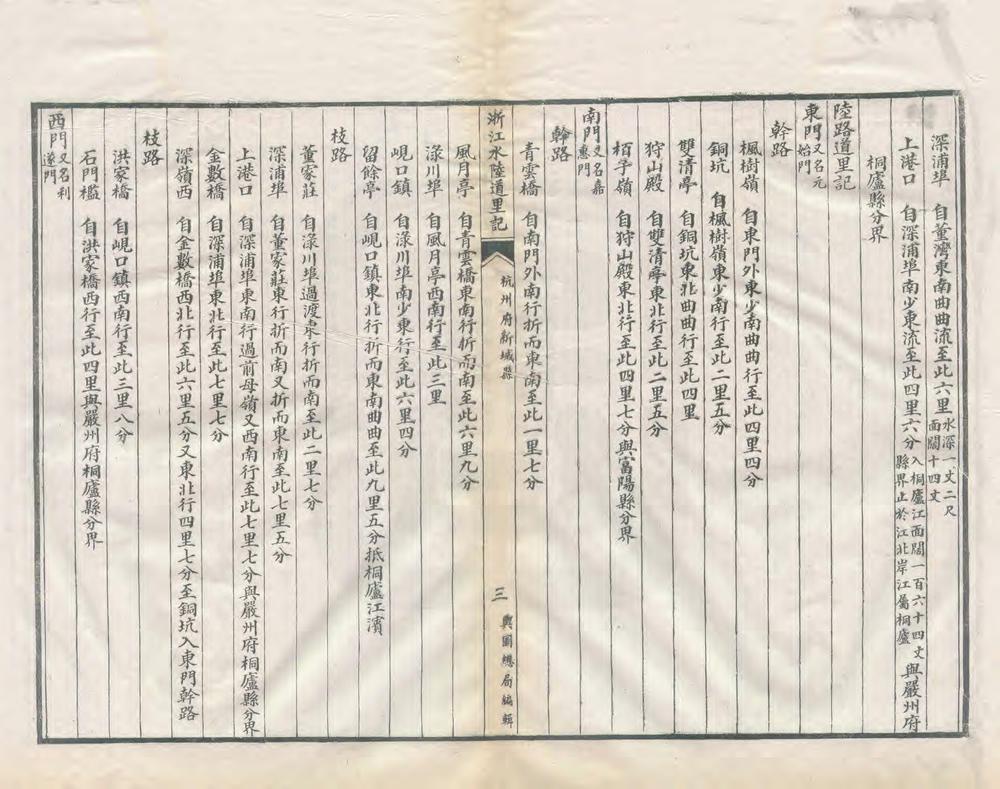 深浦埠　自董灣東南曲曲流至此六里水深一丈二尺面闊十四丈
上港口　自深浦埠南少東流至此四里六分入桐廬江面闊一百六十四丈縣界止於江北岸江屬桐廬與嚴州府
桐廬縣分界
陸路道里記
東門又名元始門
幹路
楓樹嶺　自東門外東少南曲曲行至此四里四分
銅坑　自楓樹嶺東少南行至此二里五分
雙清亭　自銅坑東北曲曲行至此四里
狩山殿　自雙清亭東北行至此二里五分
栢子嶺　自狩山殿東北行至此四里七分與富陽縣分界
南門又名嘉惠門
幹路
青雲橋　自南門外南行折而東南至此一里七分
浙江水陸道里記　杭州府新城縣　三　輿圖總局編輯
風月亭　自青雲橋東南行折而南至此六里九分
淥川埠　自風月亭西南行至此三里
峴口鎮　自淥川埠南少東行至此六里四分
留餘亭　自峴口鎮東北行折而東南曲曲至此九里五分抵桐廬江濱
枝路
董家莊　自淥川埠過渡東行折而南至此二里七分
深浦埠　自董家莊東行折而南又折而東南至此七里五分
上港口　自深浦埠東南行過前母嶺又西南行至此七里七分與嚴州府桐廬縣分界
金數橋　自深浦埠東北行至此七里七分
深嶺西　自金數橋西北行至此六里五分又東北行四里七分至銅坑入東門幹路
枝路
洪家橋　自峴口鎮西南行至此三里八分
石門檻　自洪家橋西行至此四里與嚴州府桐廬縣分界
西門又名利遂門